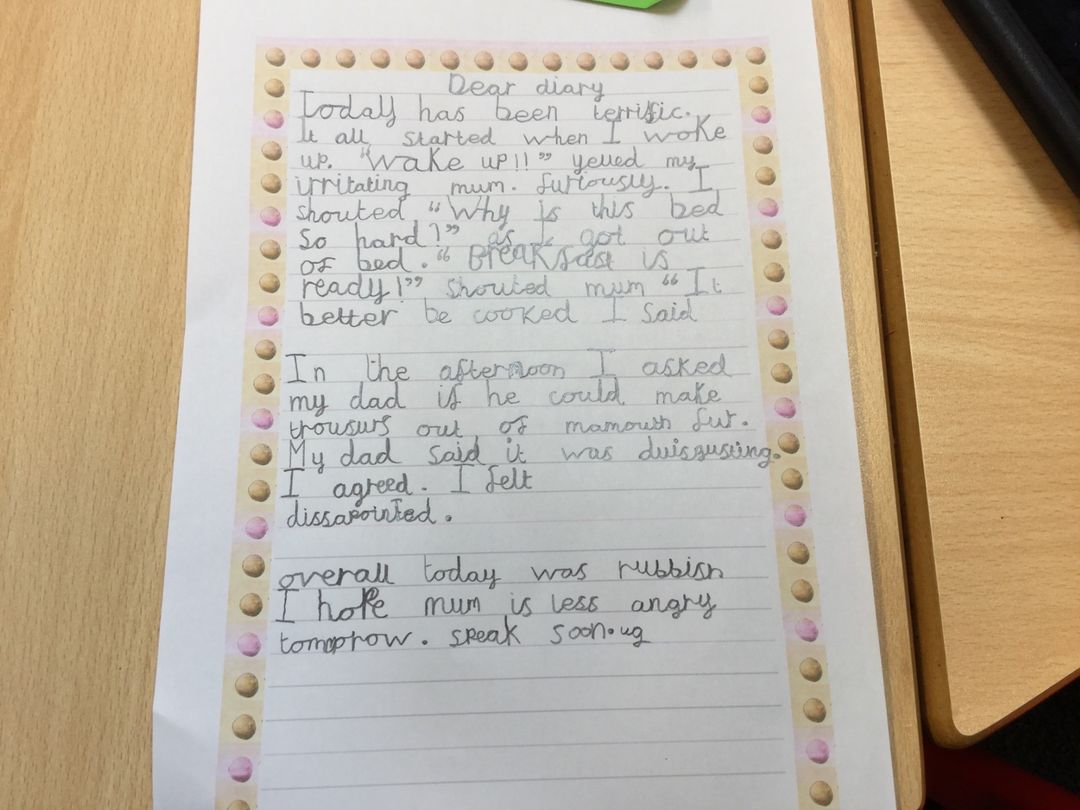 Dear diary
Today has been terrific.
It all started when I woke
up. "Wake up!!" yelled my
irritating mum. furiously. I
shouted "Why is this bed
so hard?" as I got out
of bed. "Breakfast is
ready!" shouted mum "It
better be cooked I said
In the afternoon I asked
my dad if he could make
trousurs out of mamouth fur.
My dad said it was duisgusting.
I agreed. I felt
dissapointed.
overall today was rubbish
I hope mum is less angry
tomorrow. speak soon. ug